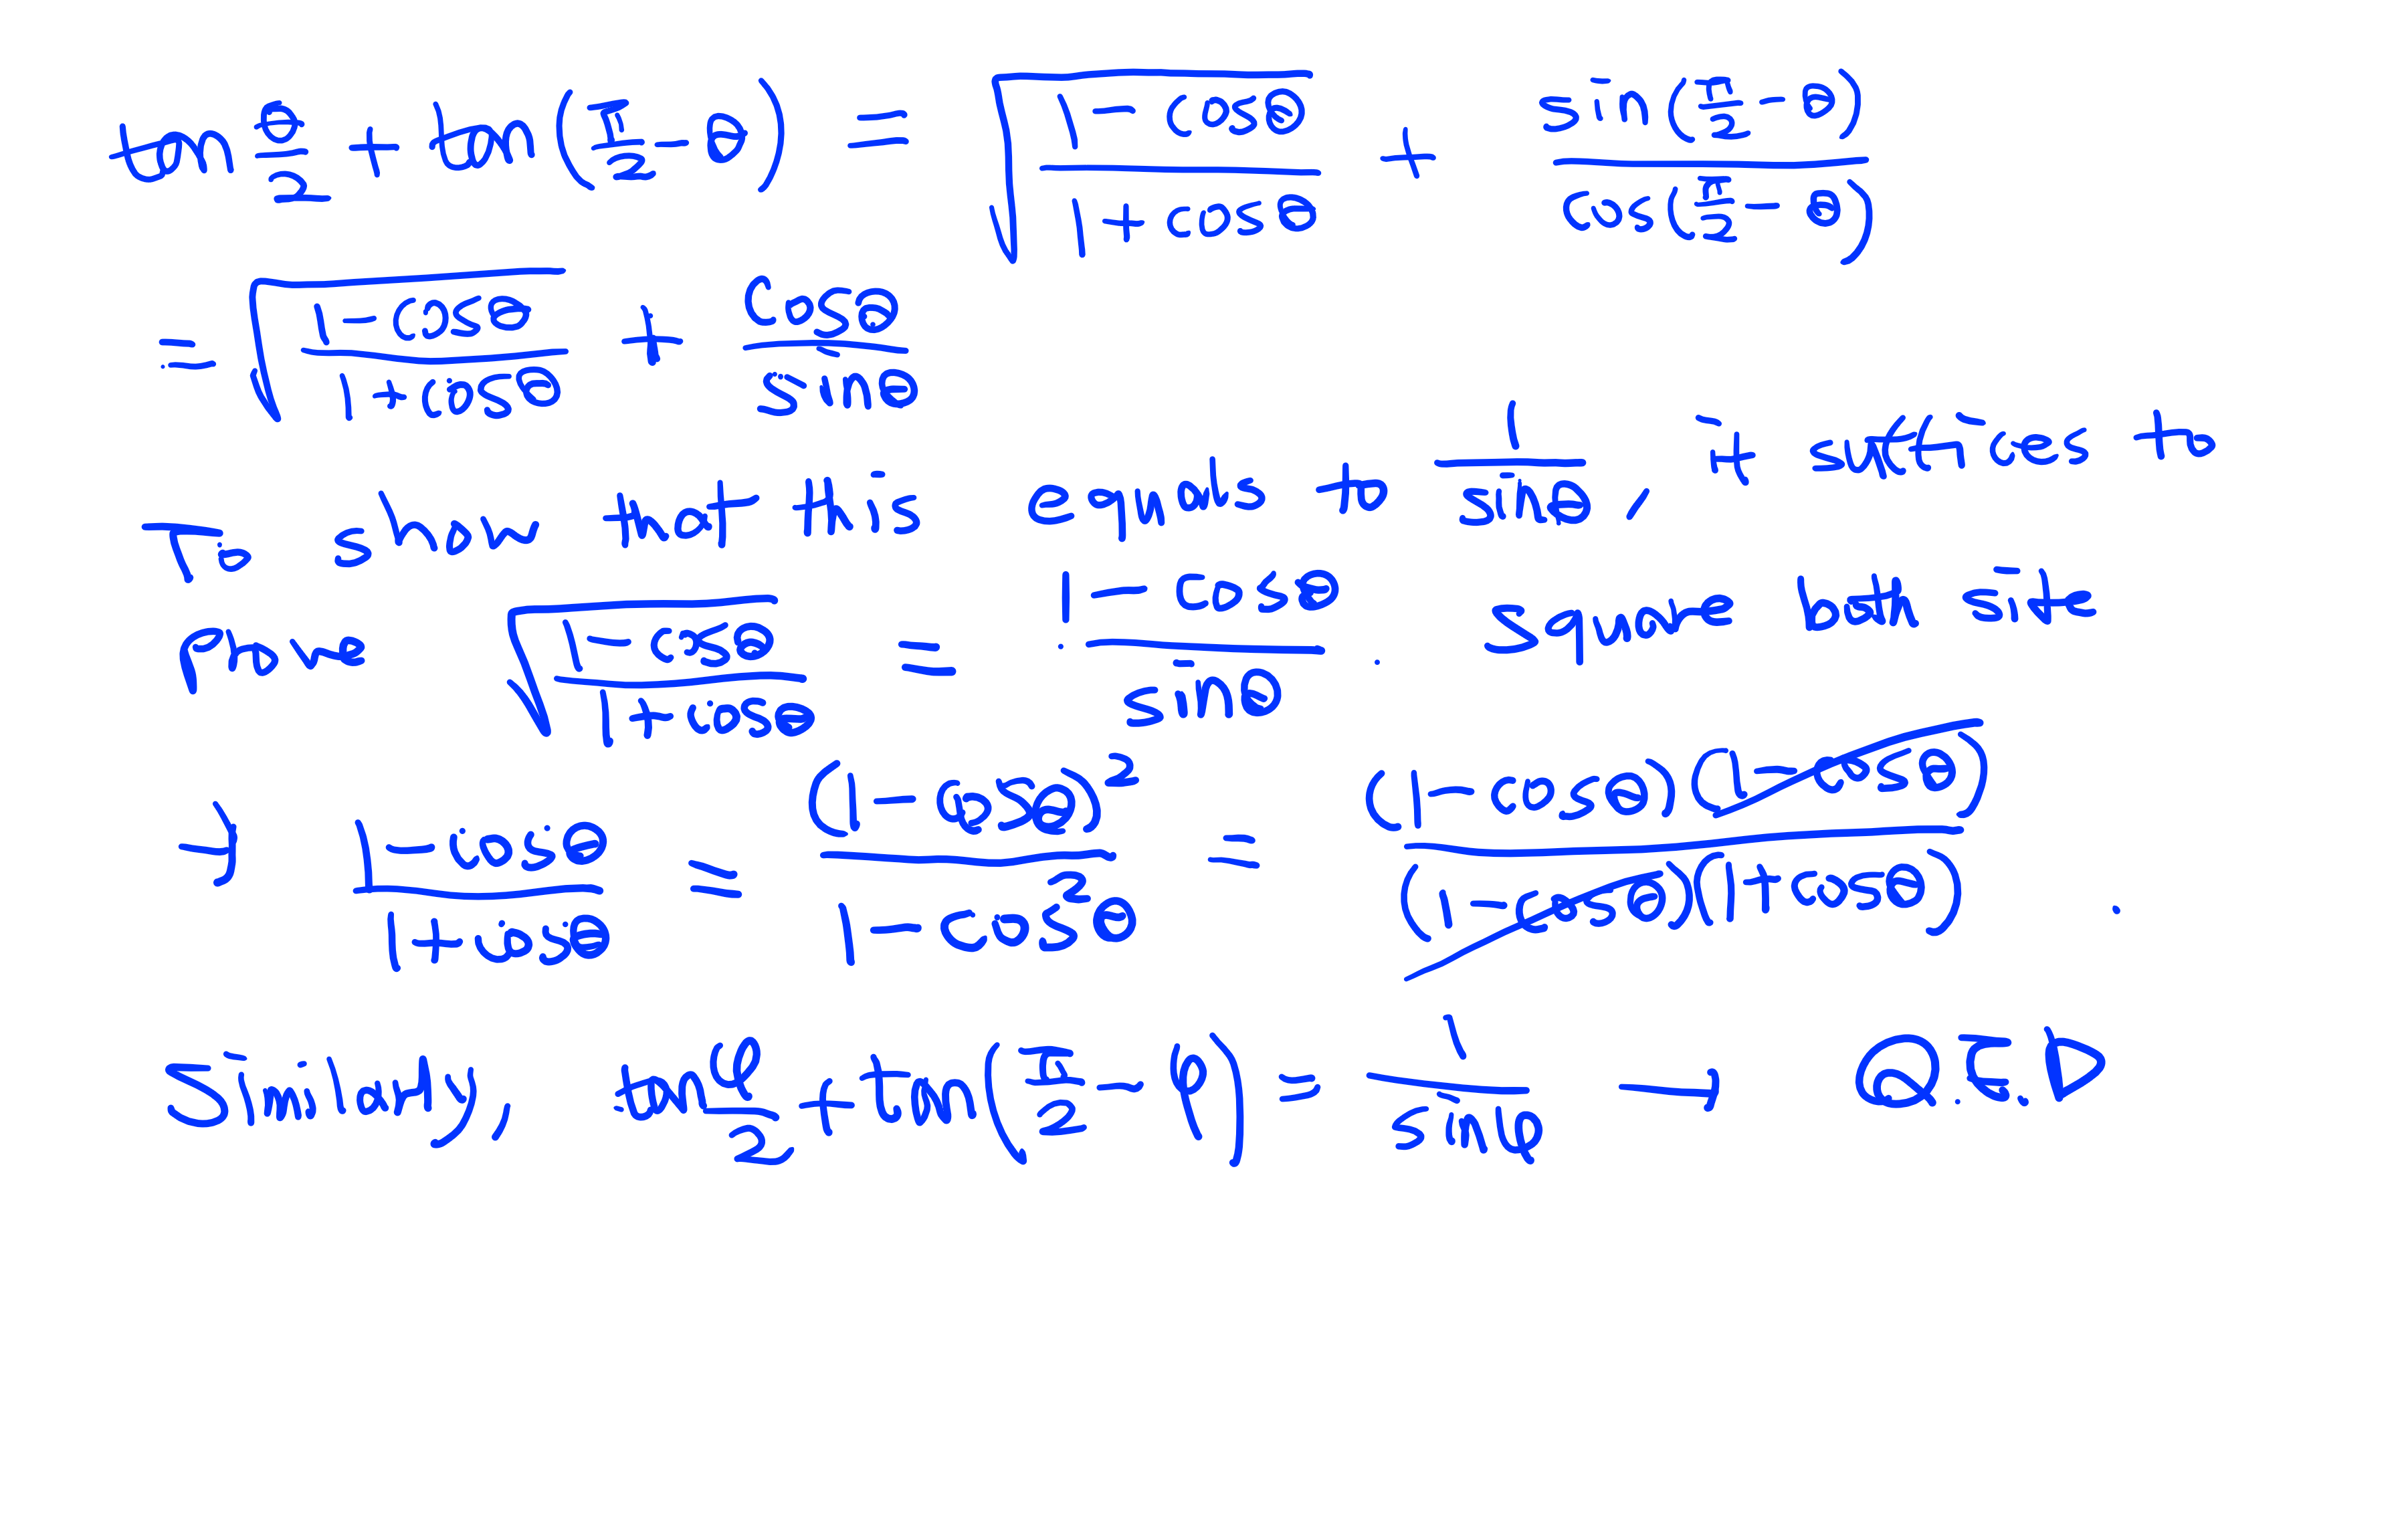 tan θ/2 + tan(π/2 − θ) = √((1 − cosθ)/(1 + cosθ)) + sin(π/2 − θ)/cos(π/2 − θ)
= √((1 − cosθ)/(1 + cosθ)) + cosθ/sinθ
To show that this equals to 1/sinθ, it suffices to
prove √((1 − cosθ)/(1 + cosθ)) = (1 − cosθ)/sinθ. Square both site
→ (1 − cosθ)/(1 + cosθ) = (1 − cosθ)²/(1 − cos²θ) = (1 − cosθ)(1 − cosθ)/((1 − cosθ)(1 + cosθ)).
Similarly, tan φ/2 + tan(π/2 − φ) = 1/sinφ → Q.E.D